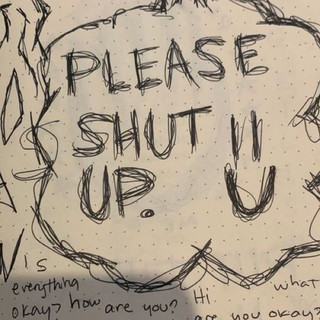 PLEASE
SHUT !!
UP. U
is
everything Hi what
okay? how are you? are you okay?